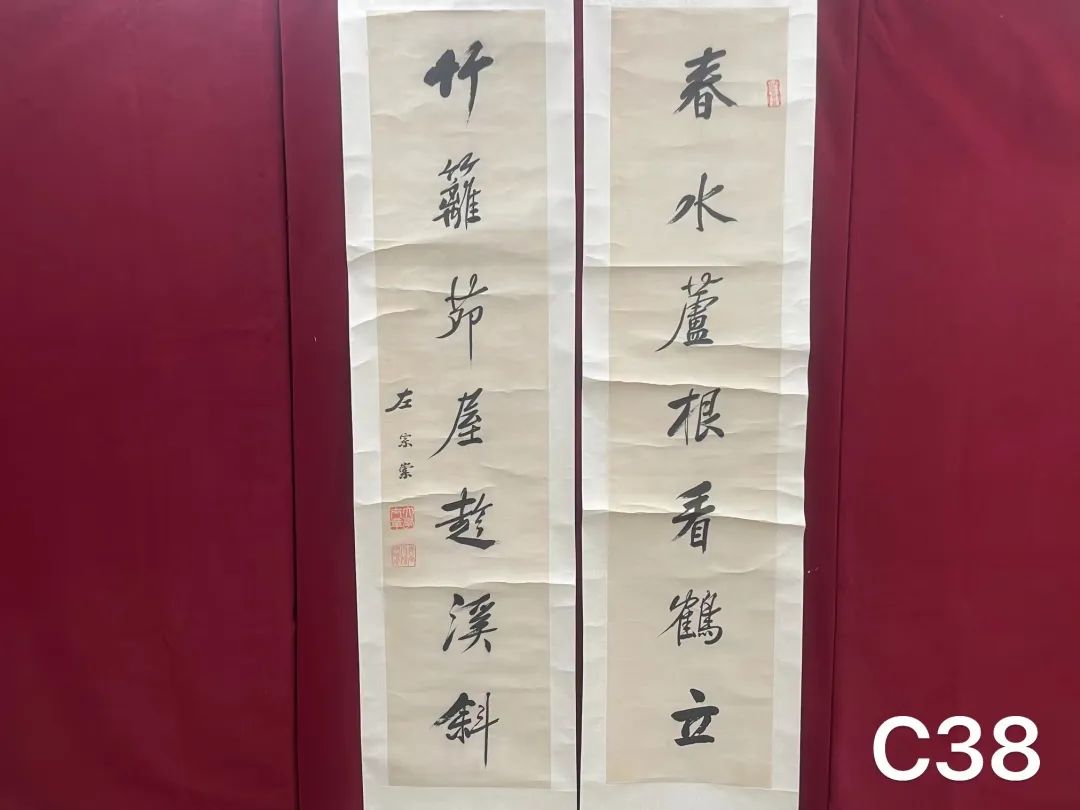 春水蘆根看鶴立
竹籬茆屋趁溪斜
左宗棠
C38